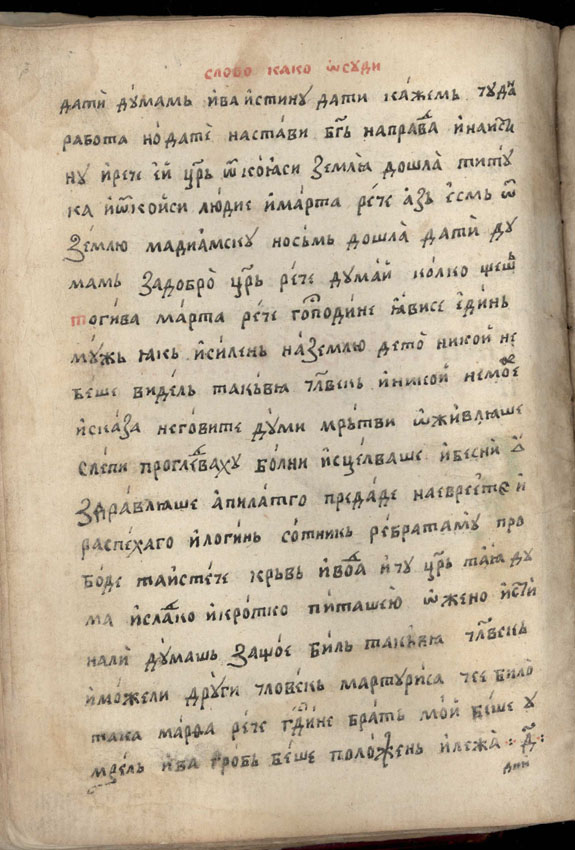 слово како ѡсуди
дати̏ ду́мамь и҆ва и҆стину дати ка́жемь туꙗ
работа но́ дате̏ настави бг҃ь направꙗ и҆ наи҆сти
ну и҆рече е҆й цр҃ь ѿ коꙗ҆си ꙁемлꙗ̀ дошла̀ ти ту́
ка и҆ ѿ кои҆си лю́дие и҆ ма́рта ре́че а҆ꙁь е҆смь ѿ
ꙁемлю мадиа҆мску но сьмь дошла̀ дати̏ ду
мамь ꙁа добро̀ цр҃ь ре́че ду́май ко́лко щешь
тогива ма́рта ре́че го҃сподине ꙗ҆ви се е҆ди́нь
му́жь ꙗ҆кь и҆ си́лень на ꙁемлю дето̀ никой не
беше виде́ль такьвꙗ чл҃вѣкь и҆ никой немо́же
и҆скаꙁа неговите ду́ми мрьтви ѡ҆живлꙗше
слепи прогле́ваху бо́лни и҆сцелваше и҆ бесни̏
ꙁдра́влꙗше а҆ пилат го преда́де на еврее́те и҆
распе́ха го и҆ логи́нь со́тникь ре́брата му про
боде та и҆сте́че крьвь и҆ вода и҆ чу цр҃ь таꙗ ду
ма и҆ сла́дко и҆ кро́тко пи́таше ю ѡ҆ жено и҆сти
на ли̏ ду́машь ꙁащо́ е би́ль такьвꙗ чл҃вѣкь
и҆ мо́же ли дру́ги чловѣкь мартури́са че е било̀
така марѳа ре́че гд҃ине брать мо́й беше у
мрѣль и҆ ва гробь бе́ше поло́жень и҆ лежа̀ ·д҃·
дни